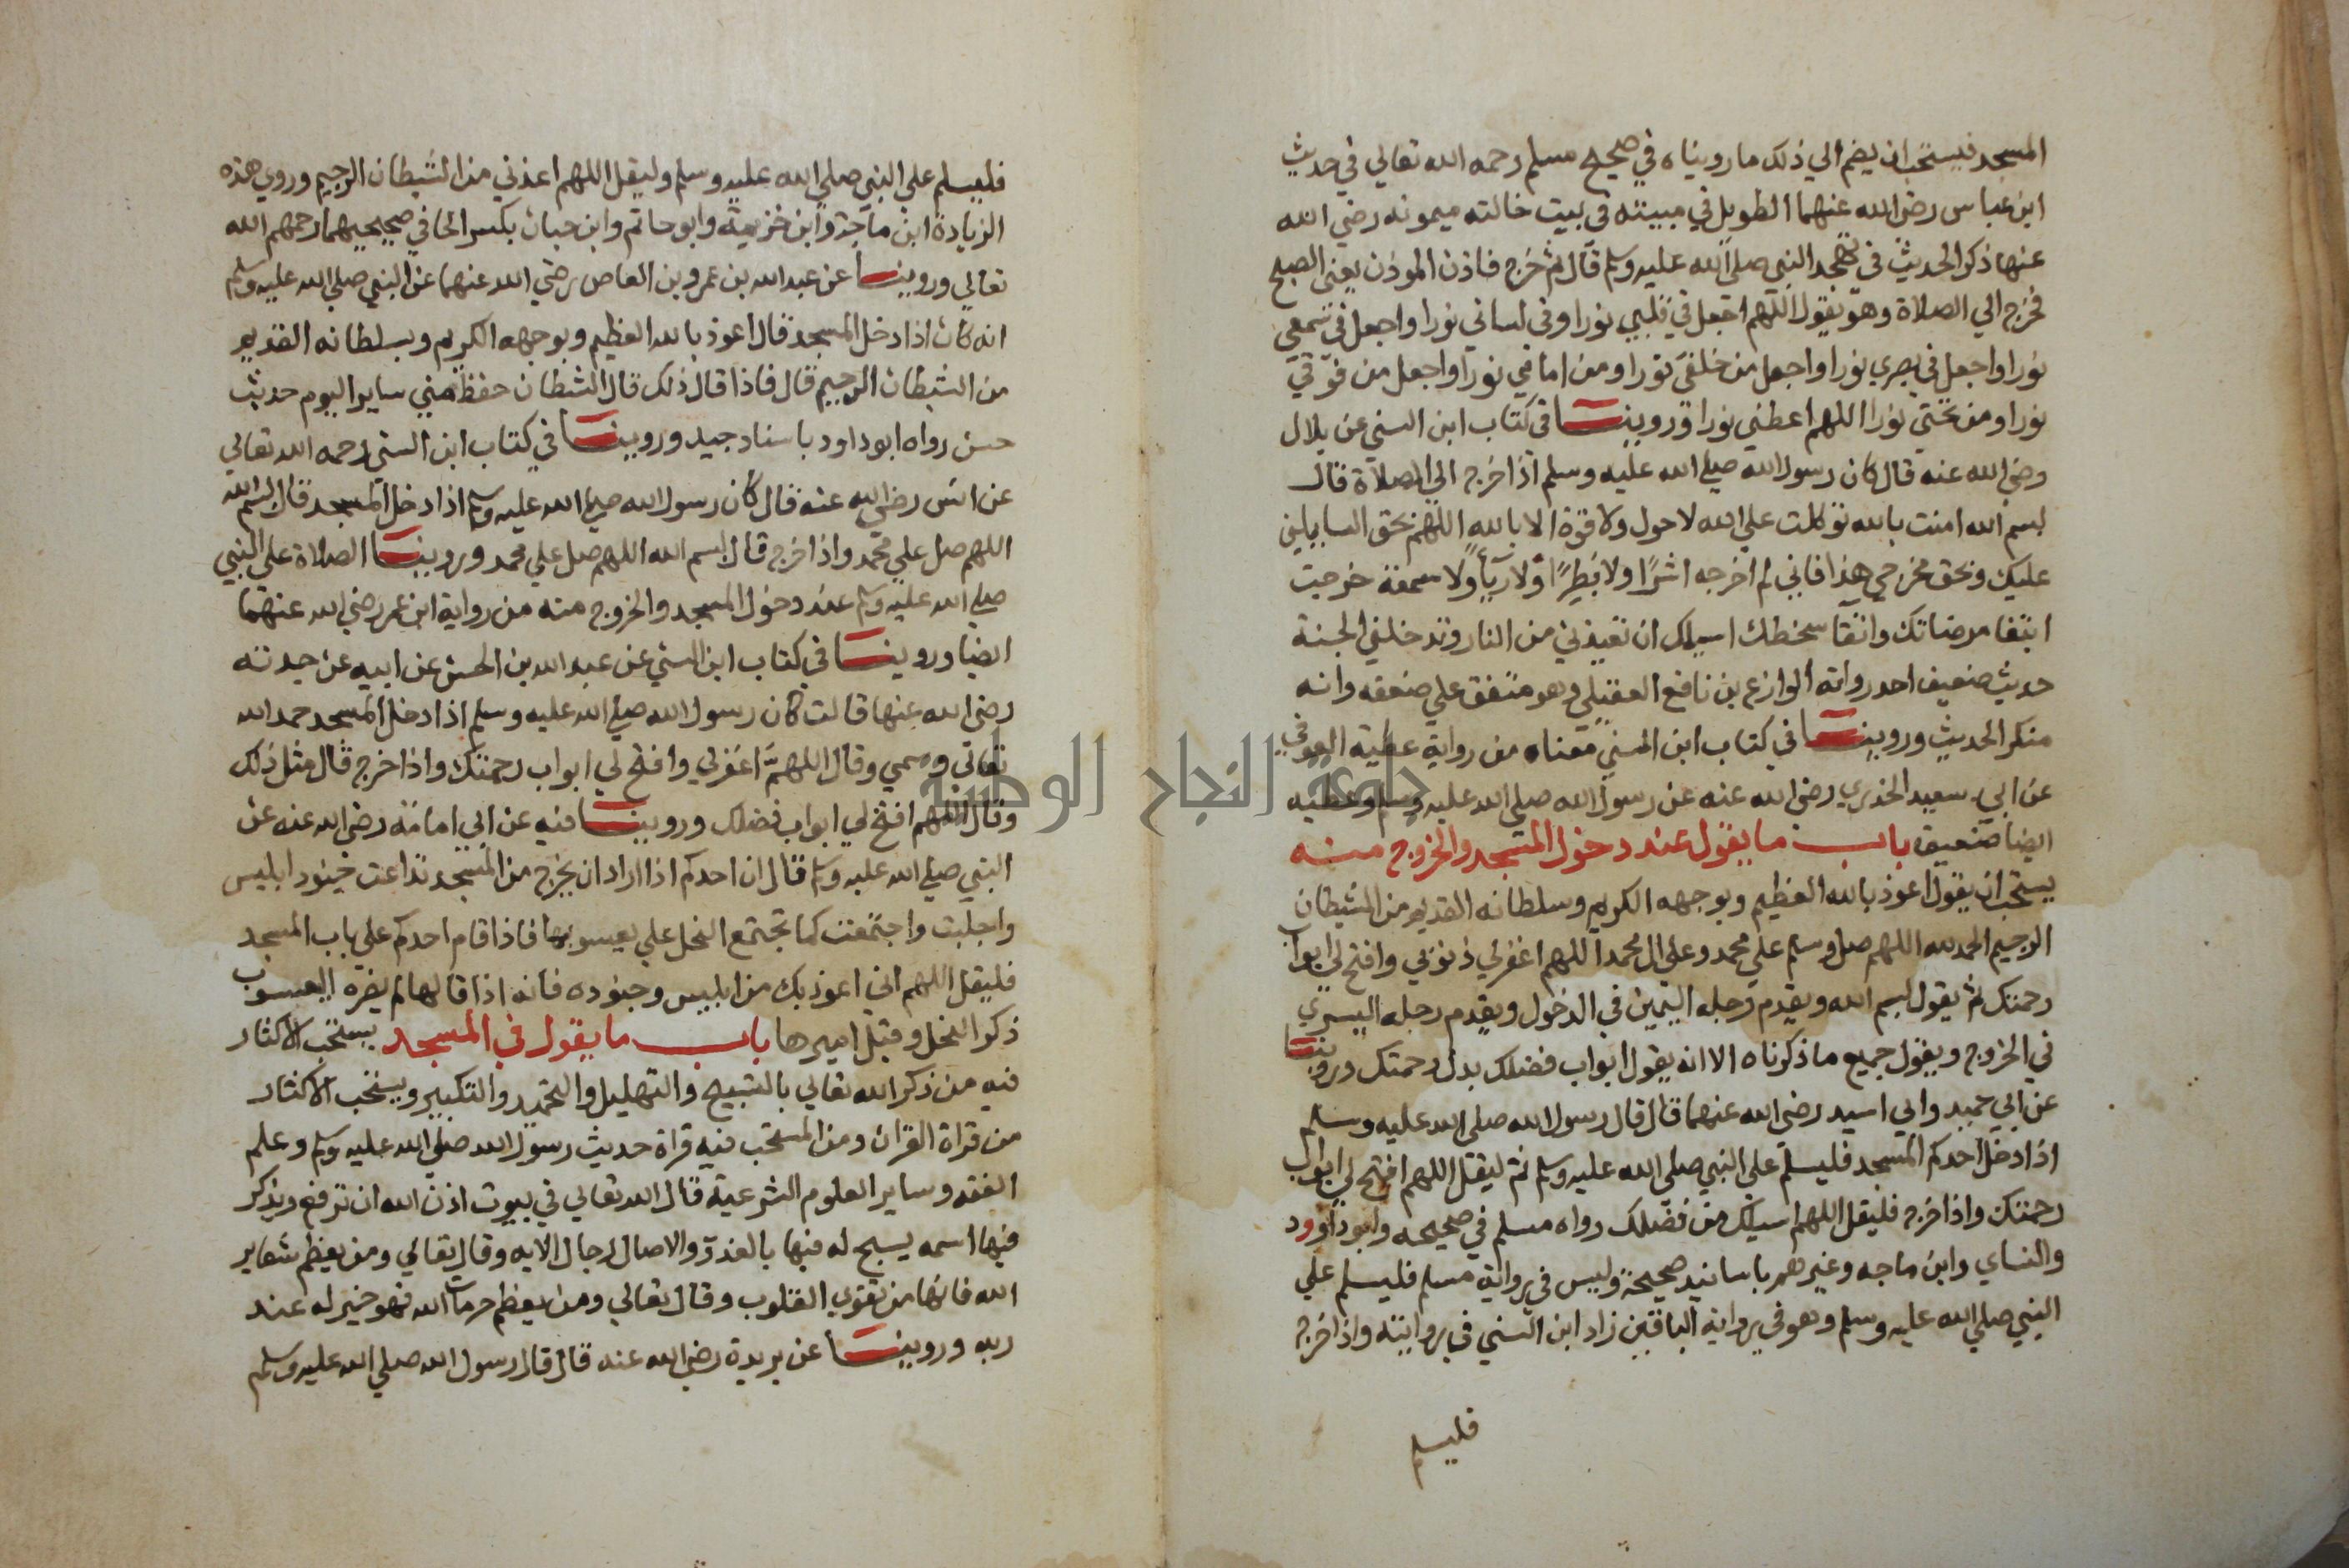 المسجد فيستحب ان يضم الي ذلك ما رويناه في صحيح مسلم رحمه الله تعالي في حديث
ابن عباس رضي الله عنهما الطويل في مبيته في بيت خالته ميمونه رضي الله
عنها ذكر الحديث في تهجد النبي صلي الله عليه وسلم قال ثم خرج فاذن الموذن يعني الصبح
فخرج الي الصلاة وهو يقول اللهم اجعل في قلبي نورا وفي لساني نورا واجعل في سمعي
نورا واجعل في بصري نورا واجعل من خلفي نورا ومن امامي نورا واجعل من فوقي
نورا ومن تحتي نورا اللهم اعطني نورا وروينا في كتاب ابن السني عن بلال
رضي الله عنه قال كان رسول الله صلي الله عليه وسلم اذا خرج الي الصلاة قال
بسم الله امنت بالله توكلت علي الله لا حول ولا قوة الا بالله اللهم بحق السايلين
عليك وبحق مخرجي هذا فاني لم اخرجه اشرا ولا بطرا ولا رياً ولا سمعة خرجت
ابتغا مرضاتك واتقا سخطك اسيلك ان تعيذني من النار وتدخلني الجنة
حديث ضعيف احد رواته الوازع بن نافع العقيلي وهو متفق علي ضعفه وانه
منكر الحديث وروينا في كتاب ابن السني معناه من رواية عطية العوفي
عن ابي سعيد الخدري رضي الله عنه عن رسول الله صلي الله عليه وسلم وعطيه
ايضا ضعيف باب ما يقول عند دخول المسجد والخروج منه
يستحب ان يقول اعوذ بالله العظيم وبوجهه الكريم وسلطانه القديم من الشيطان
الرجيم الحمد لله اللهم صل وسلم علي محمد وعلي ال محمد اللهم اغفرلي ذنوبي وافتح لي ابواب
رحمتك ثم يقول بسم الله ويقدم رجله اليمين في الدخول ويقدم رجله اليسري
في الخروج ويقول جميع ما ذكرناه الا انه يقول ابواب فضلك بدل رحمتك وروينا
عن ابي حميد وابي اسيد رضي الله عنهما قال قال رسول الله صلي الله عليه وسلم
اذا دخل احدكم المسجد فليسلم علي النبي صلي الله عليه وسلم ثم ليقل اللهم افتح لي ابواب
رحمتك واذا خرج فليقل اللهم اسيلك من فضلك رواه مسلم في صحيحه وابو داوود
والنساي وابن ماجه وغيرهم باسانيد صحيحة وليس في رواية مسلم فليسلم علي
النبي صلي الله عليه وسلم وهو في رواية الباقين زاد ابن السني في روايته واذا خرج
فليسلم
فليسلم علي النبي صلي الله عليه وسلم وليقل اللهم اعذني من الشيطان الرجيم وروي هذه
الزيادة ابن ماجة وابن خزيمة وابو حاتم وابن حبان بكسر الحا في صحيحيهما رحمهم الله
تعالي وروينا عن عبد الله بن عمرو بن العاص رضي الله عنهما عن النبي صلي الله عليه وسلم
انه كان اذا دخل المسجد قال اعوذ بالله العظيم وبوجهه الكريم وبسلطانه القديم
من الشيطان الرجيم قال فاذا قال ذلك قال الشطان حفظ مني ساير اليوم حديث
حسن رواه ابو داود باسناد جيد وروينا في كتاب ابن السني رحمه الله تعالي
عن انس رضي الله عنه قال كان رسول الله صلي الله عليه وسلم اذا دخل المسجد قال بسم الله
اللهم صل علي محمد واذا خرج قال بسم الله اللهم صل علي محمد وروينا الصلاة علي النبي
صلي الله عليه وسلم عند دخول المسجد والخروج منه من رواية ابن عمر رضي الله عنهما
ايضا وروينا في كتاب ابن السني عن عبد الله بن الحسن عن ابيه عن جدته
رضي الله عنها قالت كان رسول الله صلي الله عليه وسلم اذا دخل المسجد حمد الله
تعالي وسمي وقال اللهم اغفرلي وافتح لي ابواب رحمتك واذا خرج قال مثل ذلك
وقال اللهم افتح لي ابواب فضلك وروينا فيه عن ابي امامة رضي الله عنه عن
النبي صلي الله عليه وسلم قال ان احدكم اذا اراد ان يخرج من المسجد تداعت جنود ابليس
واجلبت واجتمعت كما تجتمع النحل علي يعسوبها فاذا قام احدكم علي باب المسجد
فليقل اللهم اني اعوذ بك من ابليس وجنوده فانه اذا قالها لم يضره اليعسوب
ذكر النحل وقيل اميرها باب ما يقول في المسجد يستحب الاكثار
فيه من ذكر الله تعالي بالتسبيح والتهليل والتحميد والتكبير ويستحب الاكثار
من قراة القران ومن المستحب فيه قراة حديث رسول الله صلي الله عليه وسلم وعلم
الفقه وساير العلوم الشرعية قال الله تعالي في بيوت اذن الله ان ترفع ويذكر
فيها اسمه يسبح له فيها بالغدو والاصال رجال الايه وقال تعالي ومن يعظم شعاير
الله فانها من تقوي القلوب وقال تعالي ومن يعظم حرمات الله فهو خير له عند
ربه وروينا عن بريدة رضي الله عنه قال قال رسول الله صلي الله عليه وسلم
جامعة النجاح الوطنية